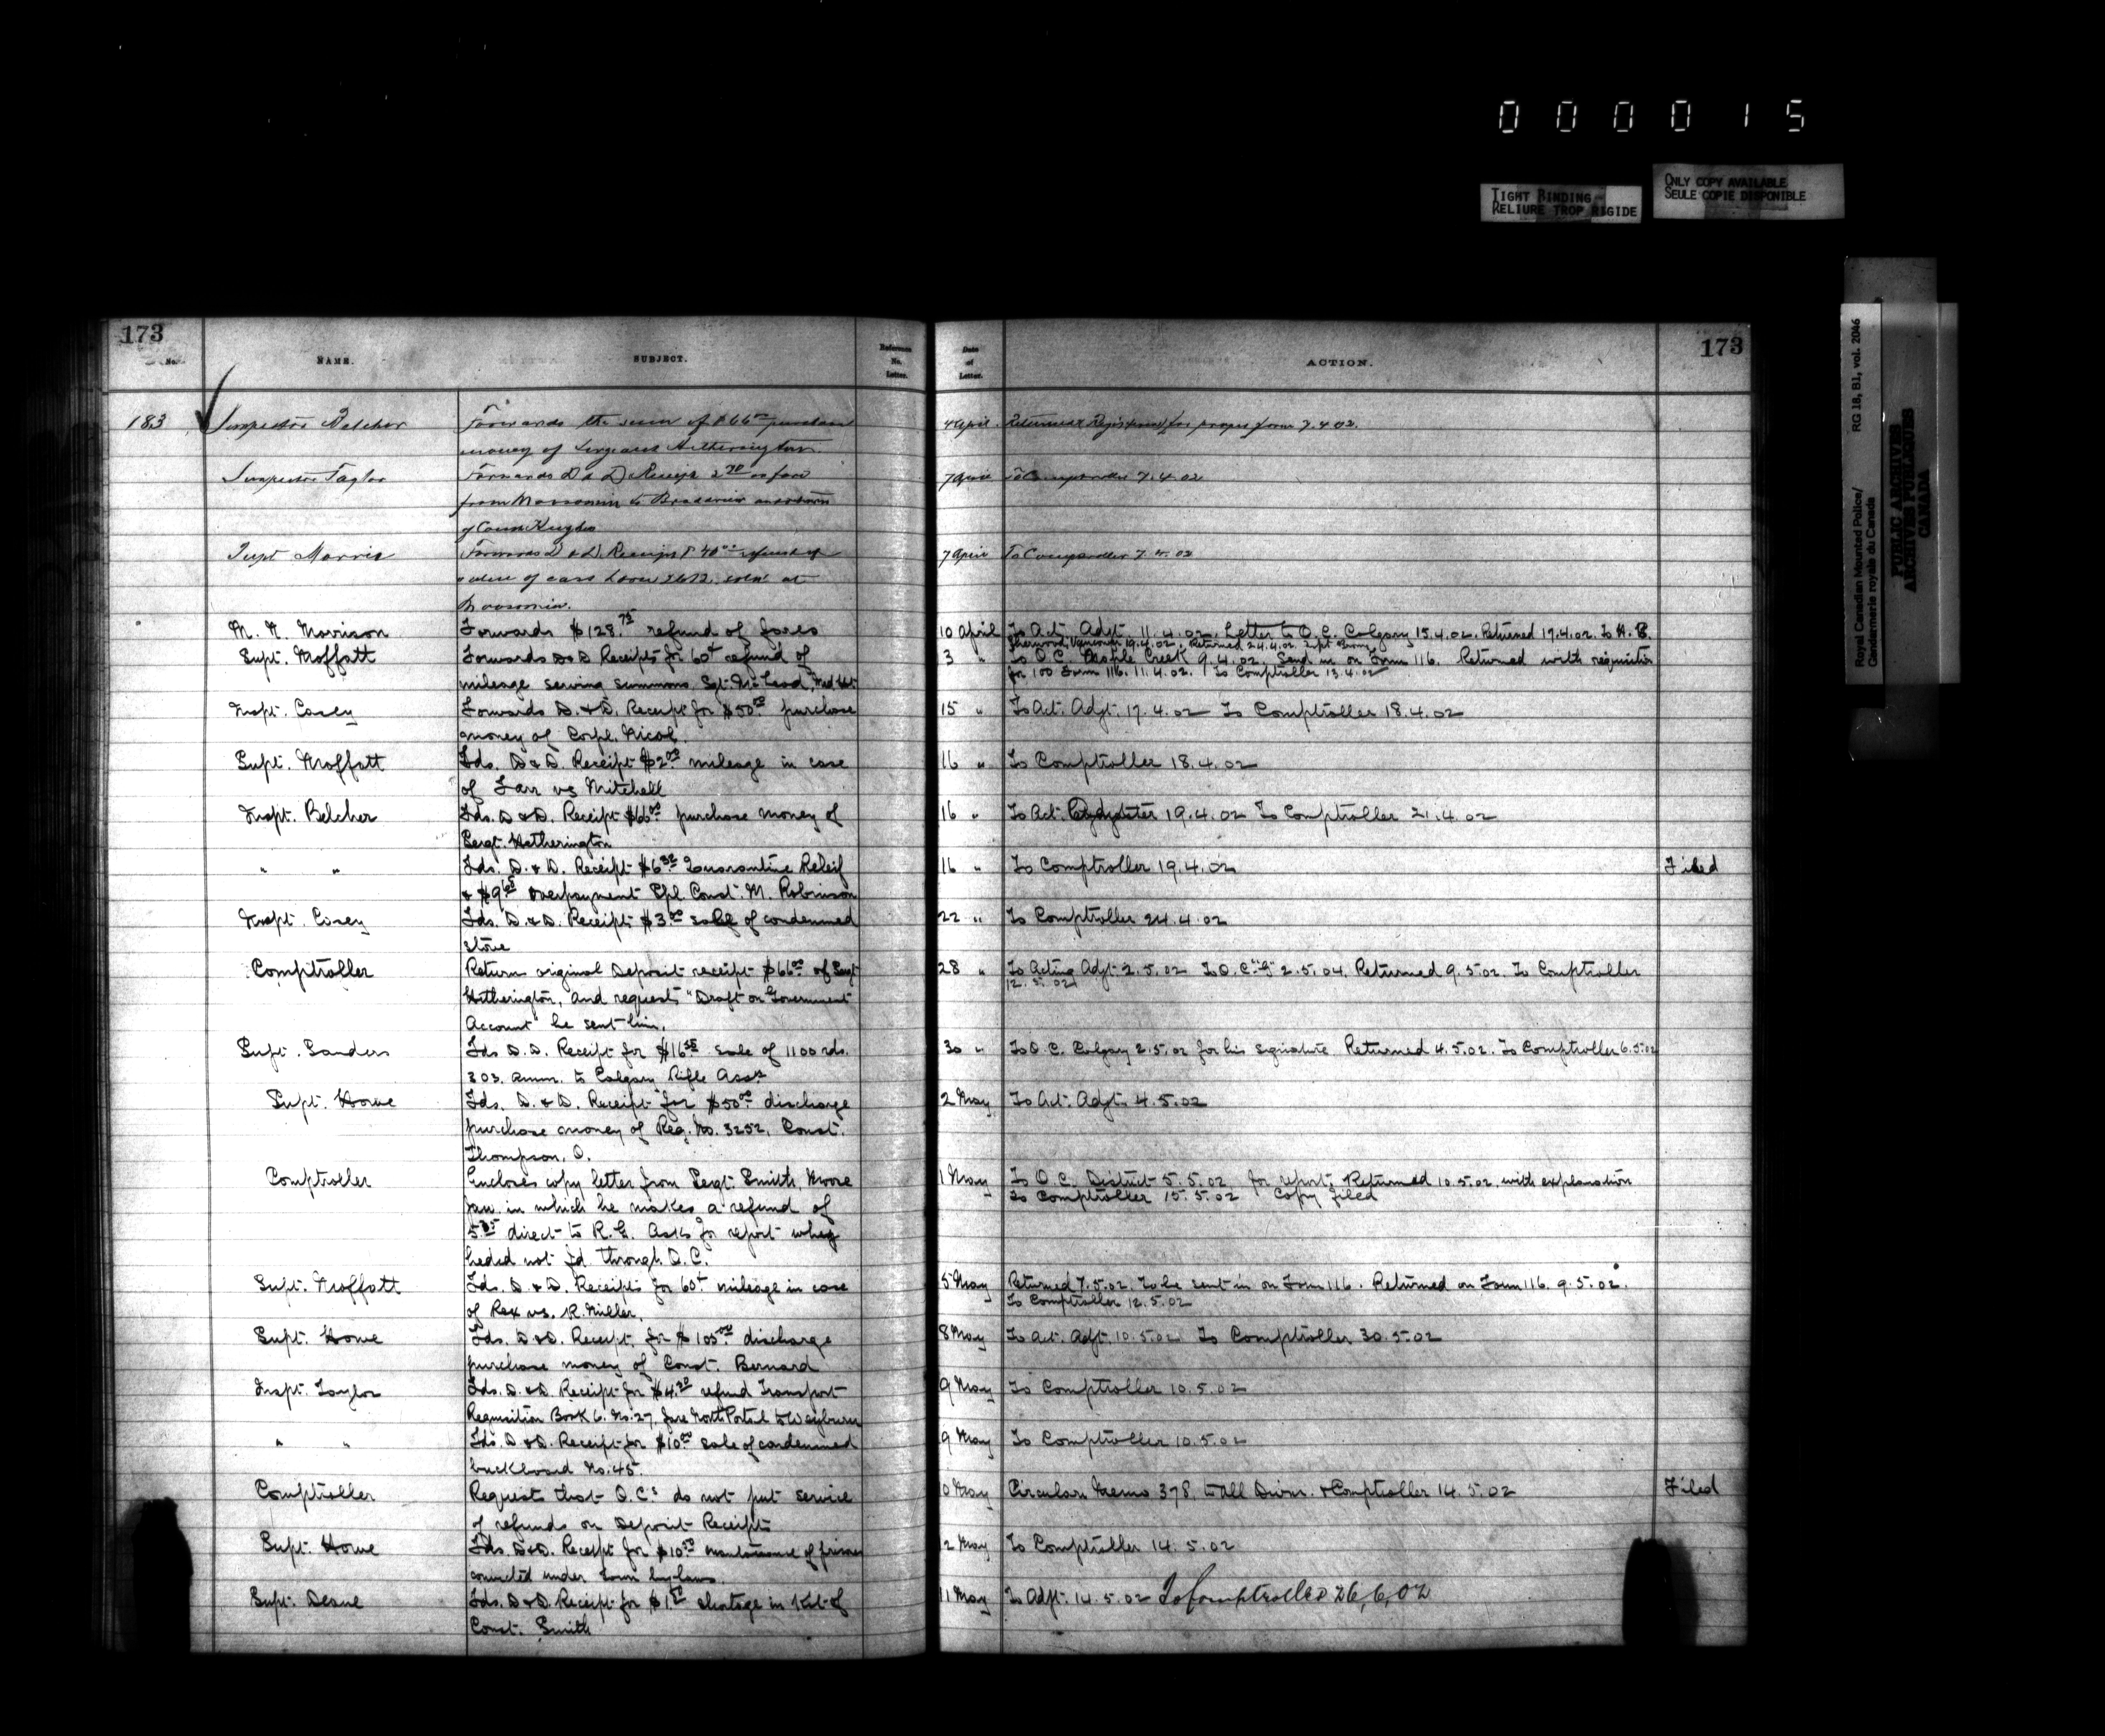 0 0 0 0 1 5
TIGHT BINDING
RELIURE TROP RIGIDE
ONLY COPY AVAILABLE
SEULE COPIE DISPONIBLE
Royal Canadian Mounted Police/
Gendarmerie royale du Canada
RG 18, B1, vol. 2046
PUBLIC ARCHIVES
ARCHIVES PUBLIQUES
CANADA
173
No.
NAME.
SUBJECT.
Reference
No.
Letter.
Date
of
Letter.
ACTION.
173
183 Inspector Belcher Forwards the sum of $66 00 purchase 4 April Returned for proper form 7.4.02.
money of Sergeant Hetherington
Inspector Taylor Forwards D & D Receipt 2 70 7 April To Comptroller 7.4.02
from Moosomin to
of Const Hughes
Supt Morris Forwards D & D. Receipt 7 April To Comptroller 7.4.02
value of
Moosomin.
M. N. Morrison Forwards $128.75 refund of fares 10 April To Act. Adjt. 11.4.02. Letter to O.C. Calgary 15.4.02. Returned 17.4.02. To A. B.
Sherwood, Vancouver 19.4.02. Returned 24.4.02.
Supt. Moffatt Forwards D & D Receipts for 60¢ refund of 3 " To O.C. Maple Creek 9.4.02. Send in on Form 116. Returned with requisition
mileage serving summons Sgt. McLeod, Med Hat. for 100 Form 116. 11.4.02. To Comptroller 13.4.02
Inspt. Casey Forwards D. & D. Receipt for $50 00 purchase 15 " To Act. Adjt. 17.4.02 To Comptroller 18.4.02
money of Corpl. Nicol.
Supt. Moffatt Fds. D & D. Receipt $2 00 mileage in case 16 " To Comptroller 18.4.02
of Farr vs Mitchell
Inspt. Belcher Fds. D & D. Receipt $66 00 purchase money of 16 " To Act. 19.4.02 To Comptroller 21.4.02
Sergt. Hetherington
" " Fds. D. & D. Receipt $6 Quarantine Releif 16 " To Comptroller 19.4.02 Filed
& $9 65 overpayment Spl Const. M. Robinson
Inspt. Casey Fds. D. & D. Receipt $3 00 sale of condemned 22 " To Comptroller 24.4.02
stove
Comptroller Return original Deposit receipt $66 00 of Sergt 28 " To Acting Adjt 2.5.02 To O.C. "G" 2.5.04. Returned 9.5.02. To Comptroller
Hetherington, and requests "Draft on Government 12.5.02
Account" be sent him.
Supt. Sanders Fds D.D. Receipt for $16 sale of 1100 rds. 30 " To O.C. Calgary 2.5.02 for his signature Returned 4.5.02. To Comptroller 6.5.02
303. amm. to Calgary Rifle Assn
Supt. Howe Fds. D. & D. Receipt for $50 00 discharge 2 May To Act. Adjt. 4.5.02
purchase money of Reg. No. 3252. Const.
Thompson, O.
Comptroller Encloses copy letter from Sergt. Smith, Moose 1 May To O.C. District 5.5.02 for report. Returned 10.5.02. with explanation
Jaw in which he makes a refund of to Comptroller 15.5.02 Copy filed
direct to R. G. Asks for report whey
heded not fd through O.C.
Supt. Moffatt Fds. D. & D. Receipts for 60¢ mileage in case 5 May Returned 7.5.02. To be sent in on Form 116. Returned on Form 116. 9.5.02.
of Rex vs. R. Miller. To Comptroller 12.5.02
Supt. Howe Fds. D & D. Receipt for $105 00 discharge 8 May To Act. Adjt. 10.5.02 To Comptroller 30.5.02
purchase money of Const. Bernard
Inspt. Taylor Fds. D. & D. Receipt for $4.20 refund Transport 9 May To Comptroller 10.5.02
Requisition Book 6. No. 27, fare North Portal to Weyburn
" " Fds. D & D. Receipt for $10 00 sale of condemned 9 May To Comptroller 10.5.02
buckboard No. 45.
Comptroller Requests that O.C.s do not put service 10 May Circular Memo 378, to all Divns. & Comptroller 14.5.02 Filed
of refunds on Deposit Receipts
Supt. Howe Fds. D & D. Receipt for $10 maintenance of prisoner 12 May To Comptroller 14.5.02
convicted under town by-laws.
Supt. Deane Fds. D & D. Receipt for $1 shortage in Kit of 11 May To Adjt. 14.5.02 To Comptroller 26,6,02
Const. Smith